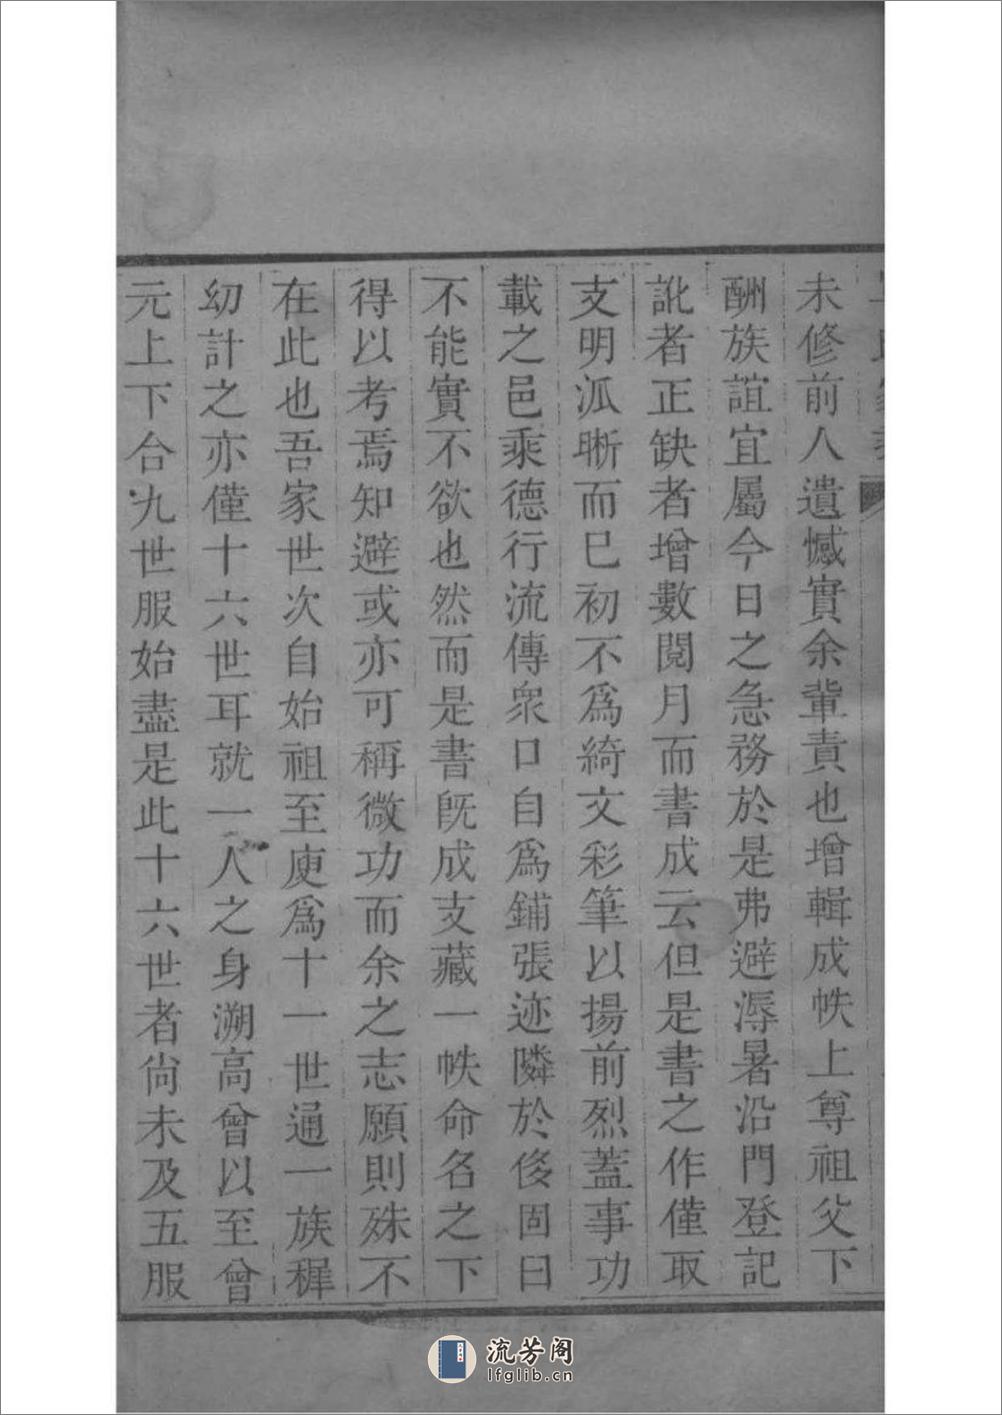 未修前人遺憾實余輩責也增輯成帙上尊祖父下
酬族誼宜屬今日之急務於是弗避溽暑沿門登記
訛者正缺者增數閱月而書成云但是書之作僅取
支明派晰而已初不爲綺文彩筆以揚前烈蓋事功
載之邑乘德行流傳衆口自爲鋪張迹隣於俊固曰
不能實不欲也然而是書旣成支藏一帙命名之下
得以考焉知避或亦可稱微功而余之志願則殊不
在此也吾家世次自始祖至庾爲十一世通一族穉
幼計之亦僅十六世耳就一人之身溯高曾以至曾
元上下合九世服始盡是此十六世者尙未及五服
流芳阁
lfglib.cn